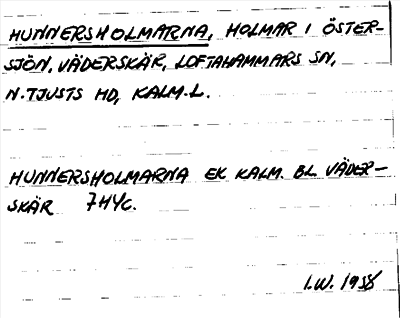 HUNNERSHOLMARNA, HOLMAR I ÖSTER-
SJÖN, VÄDERSKÄR, LOFTAHAMMARS SN,
N. TJUSTS HD, KALM. L.
HUNNERSHOLMARNA EK KALM. BL VÄDER-
SKÄR
I.W. 1938